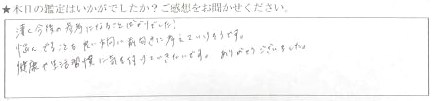 ★本日の鑑定はいかがでしたか？ご感想をお聞かせください。
凄く今後の参考になることばかりでした！
悩んでることを良い方向に前向きに考えていけそうです。
健康や生活習慣に気を付けていきたいです。ありがとうございました。